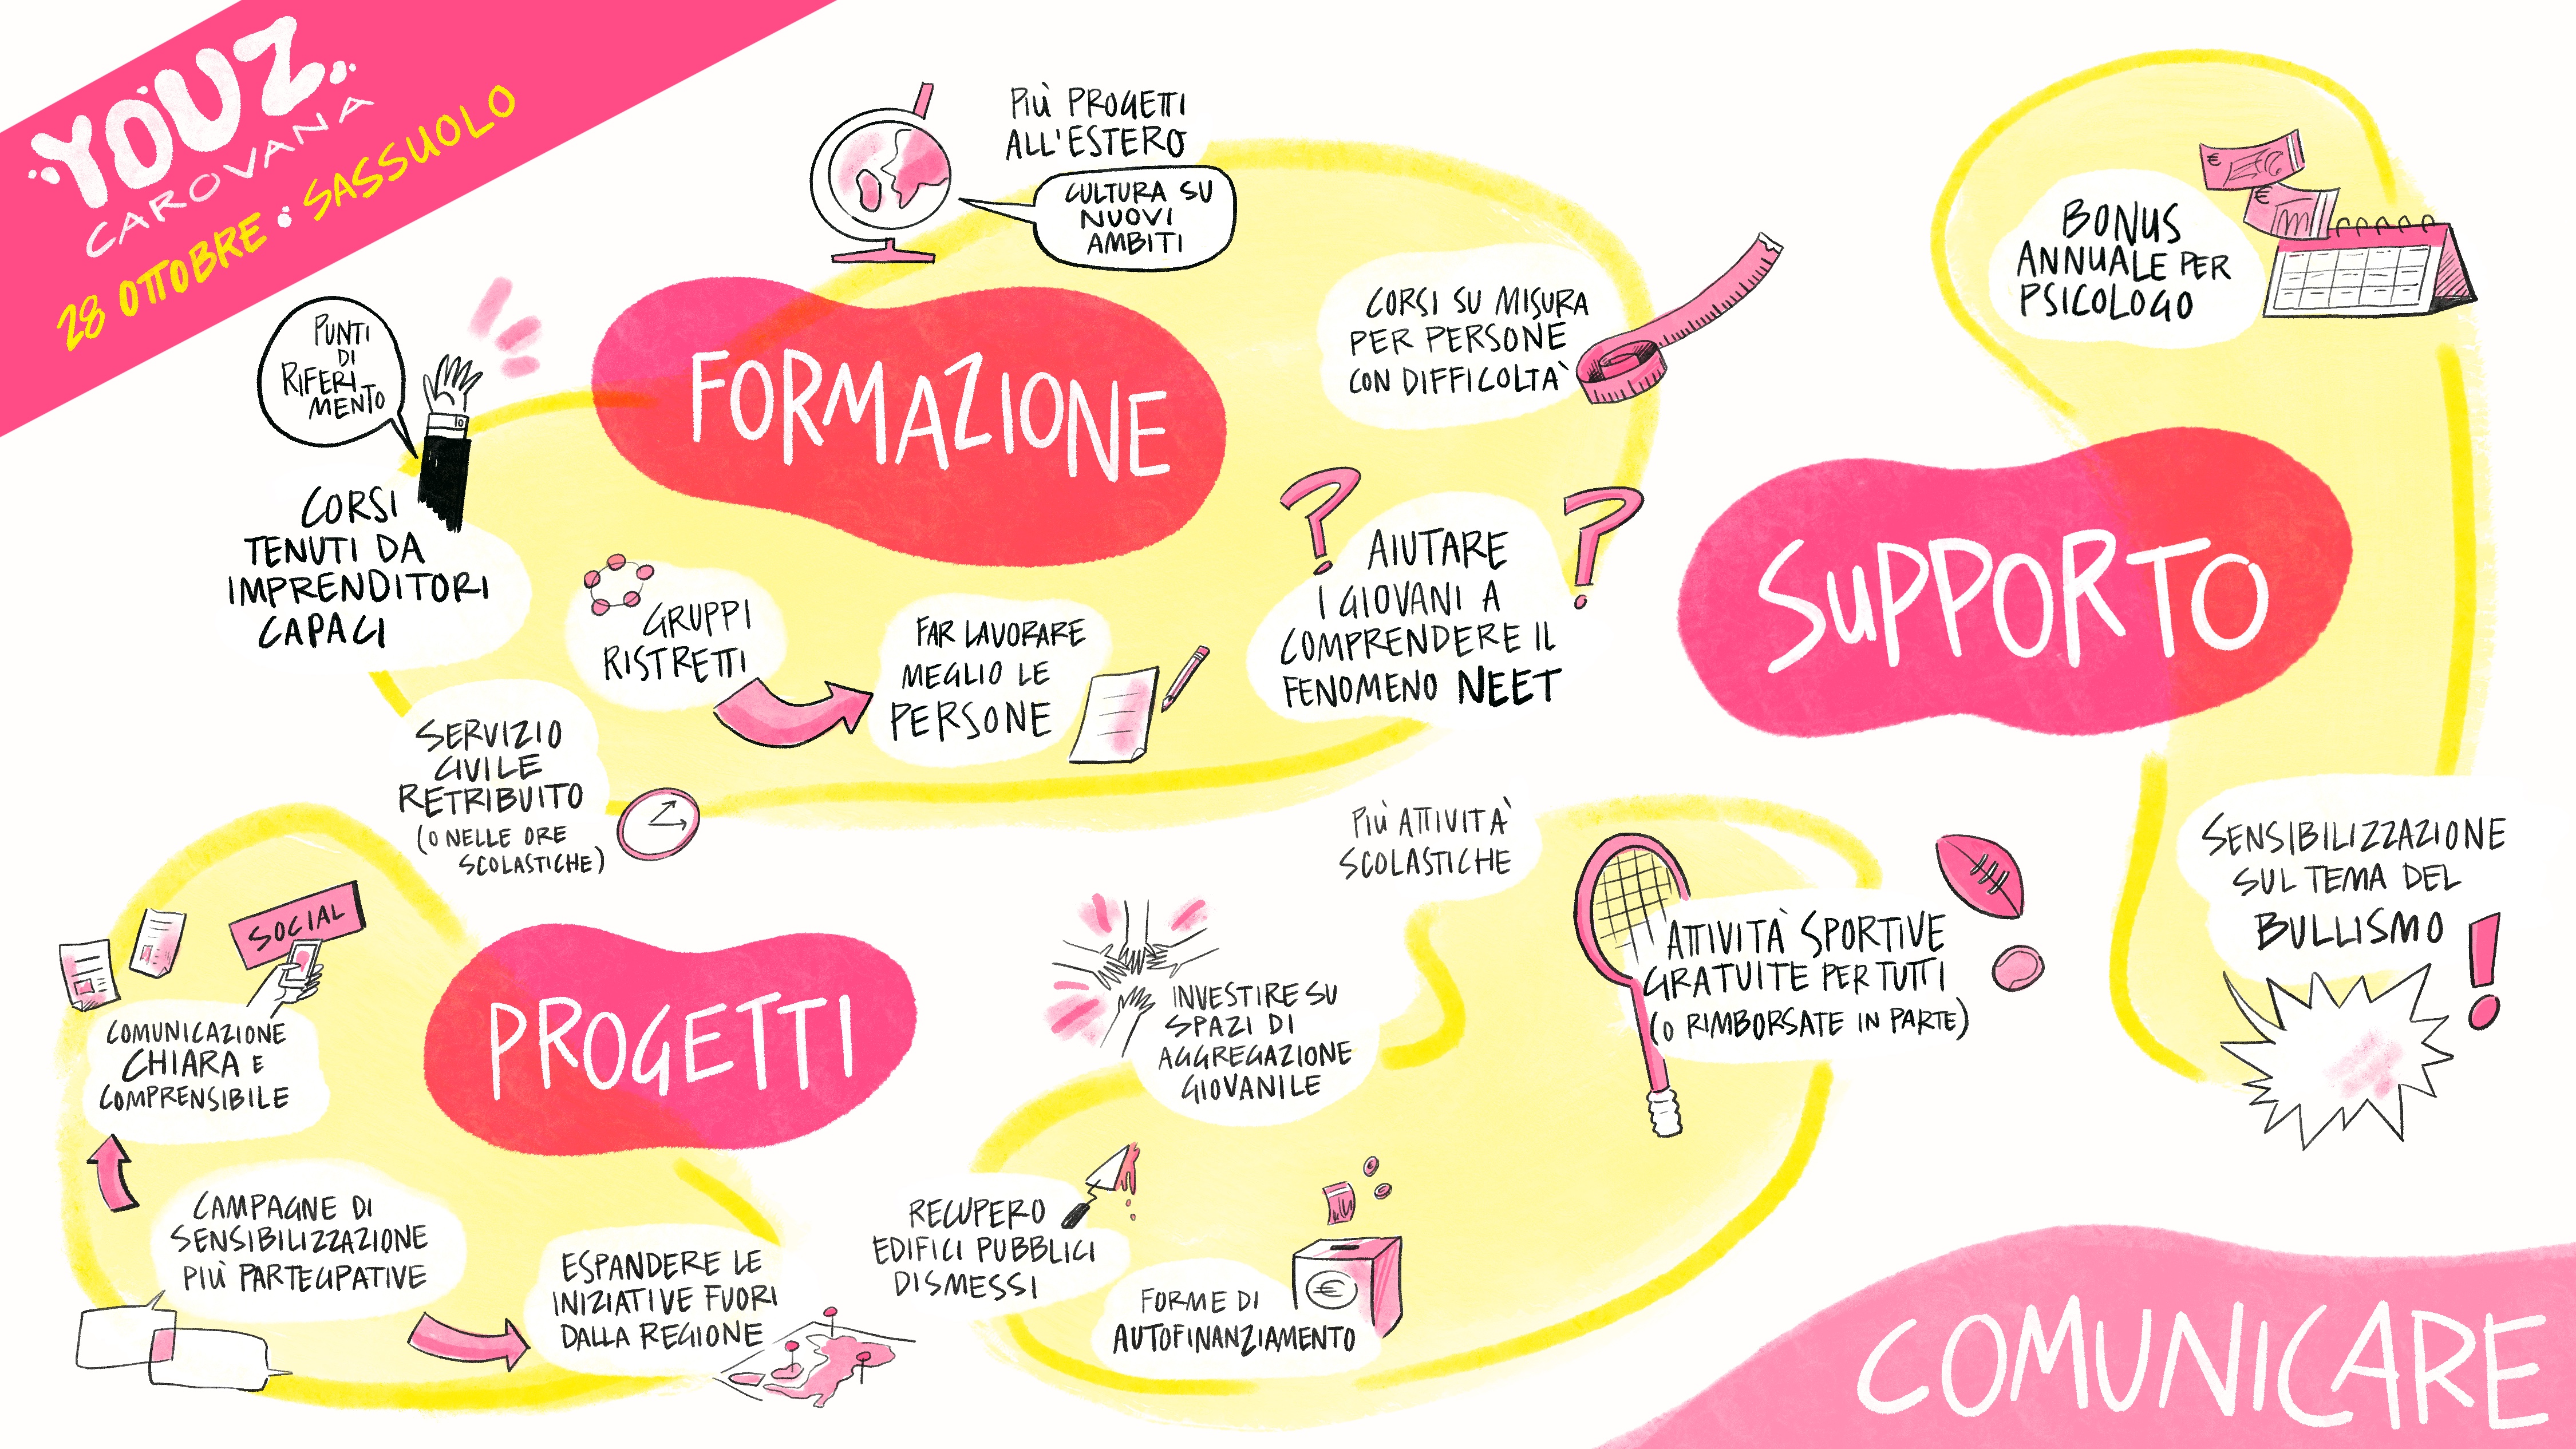 YOUZ
CAROVANA
28 OTTOBRE : SASSUOLO
PIÙ PROGETTI
ALL'ESTERO
CULTURA SU
NUOVI
AMBITI
PUNTI
DI
RIFERI
MENTO
FORMAZIONE
CORSI SU MISURA
PER PERSONE
CON DIFFICOLTÀ
CORSI
TENUTI DA
IMPRENDITORI
CAPACI
GRUPPI
RISTRETTI
FAR LAVORARE
MEGLIO LE
PERSONE
AIUTARE
I GIOVANI A
COMPRENDERE IL
FENOMENO NEET
SERVIZIO
CIVILE
RETRIBUITO
(O NELLE ORE
SCOLASTICHE)
BONUS
ANNUALE PER
PSICOLOGO
€
€
SUPPORTO
SENSIBILIZZAZIONE
SUL TEMA DEL
BULLISMO
!
SOCIAL
COMUNICAZIONE
CHIARA E
COMPRENSIBILE
PROGETTI
CAMPAGNE DI
SENSIBILIZZAZIONE
PIÙ PARTECIPATIVE
ESPANDERE LE
INIZIATIVE FUORI
DALLA REGIONE
PIÙ ATTIVITÀ
SCOLASTICHE
INVESTIRE SU
SPAZI DI
AGGREGAZIONE
GIOVANILE
ATTIVITÀ SPORTIVE
GRATUITE PER TUTTI
(O RIMBORSATE IN PARTE)
RECUPERO
EDIFICI PUBBLICI
DISMESSI
FORME DI
AUTOFINANZIAMENTO
€
COMUNICARE